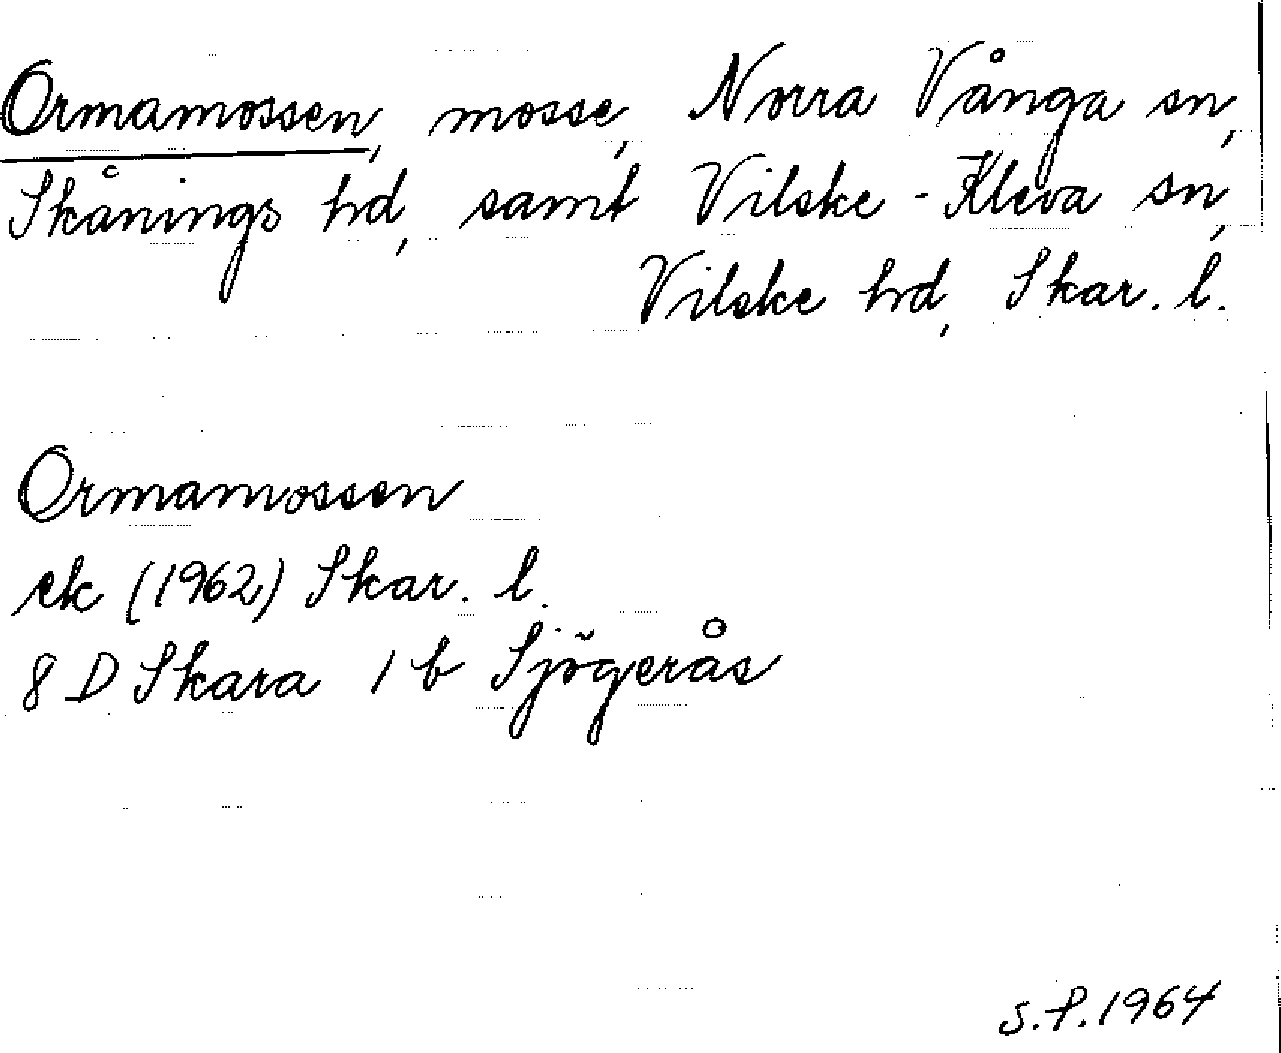 Ormamossen, mosse, Norra Vånga sn,
Skånings hd, samt Vilske-Kleva sn,
Vilske hd, Skar. l.
Ormamossen
ek (1962) Skar. l.
8 D Skara 1 b Sjögerås
S.P. 1964